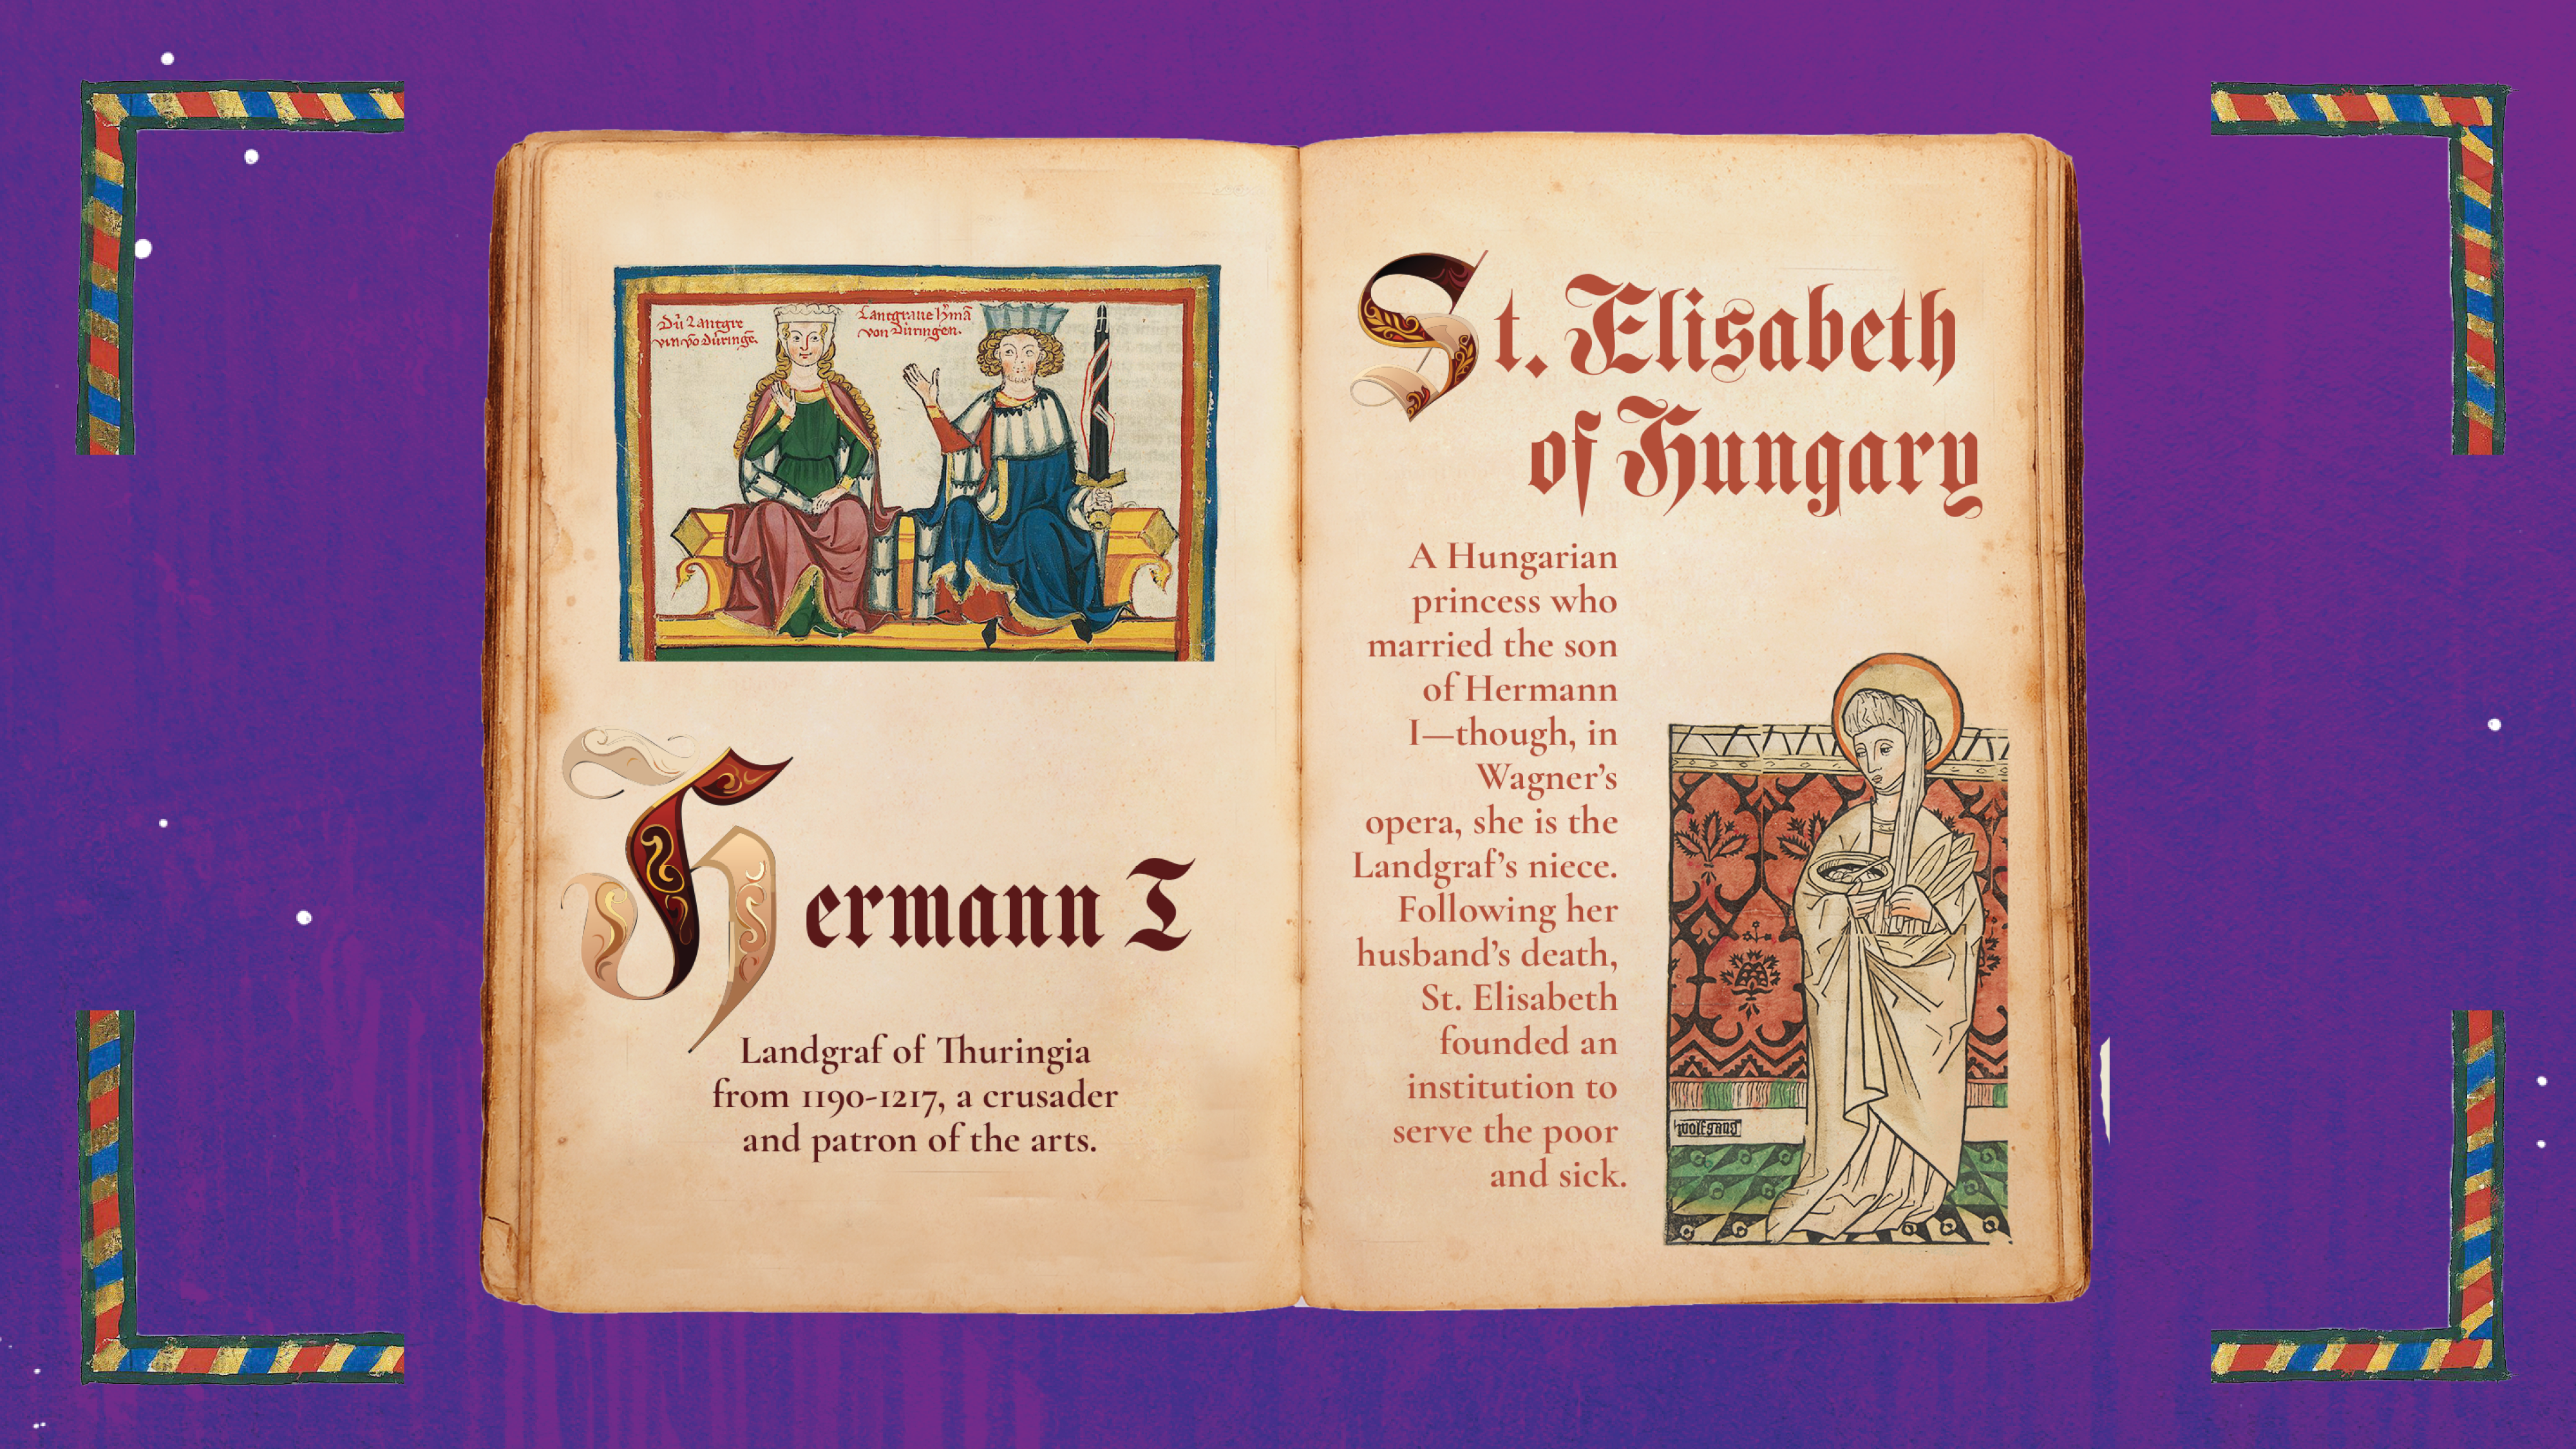 Dû Lantgre
vin vō Düringē.
Lantgraue hʼmā
von Düringen.
Hermann I
Landgraf of Thuringia
from 1190-1217, a crusader
and patron of the arts.
St. Elisabeth
of Hungary
A Hungarian
princess who
married the son
of Hermann
I—though, in
Wagner’s
opera, she is the
Landgraf’s niece.
Following her
husband’s death,
St. Elisabeth
founded an
institution to
serve the poor
and sick.
wolfgang